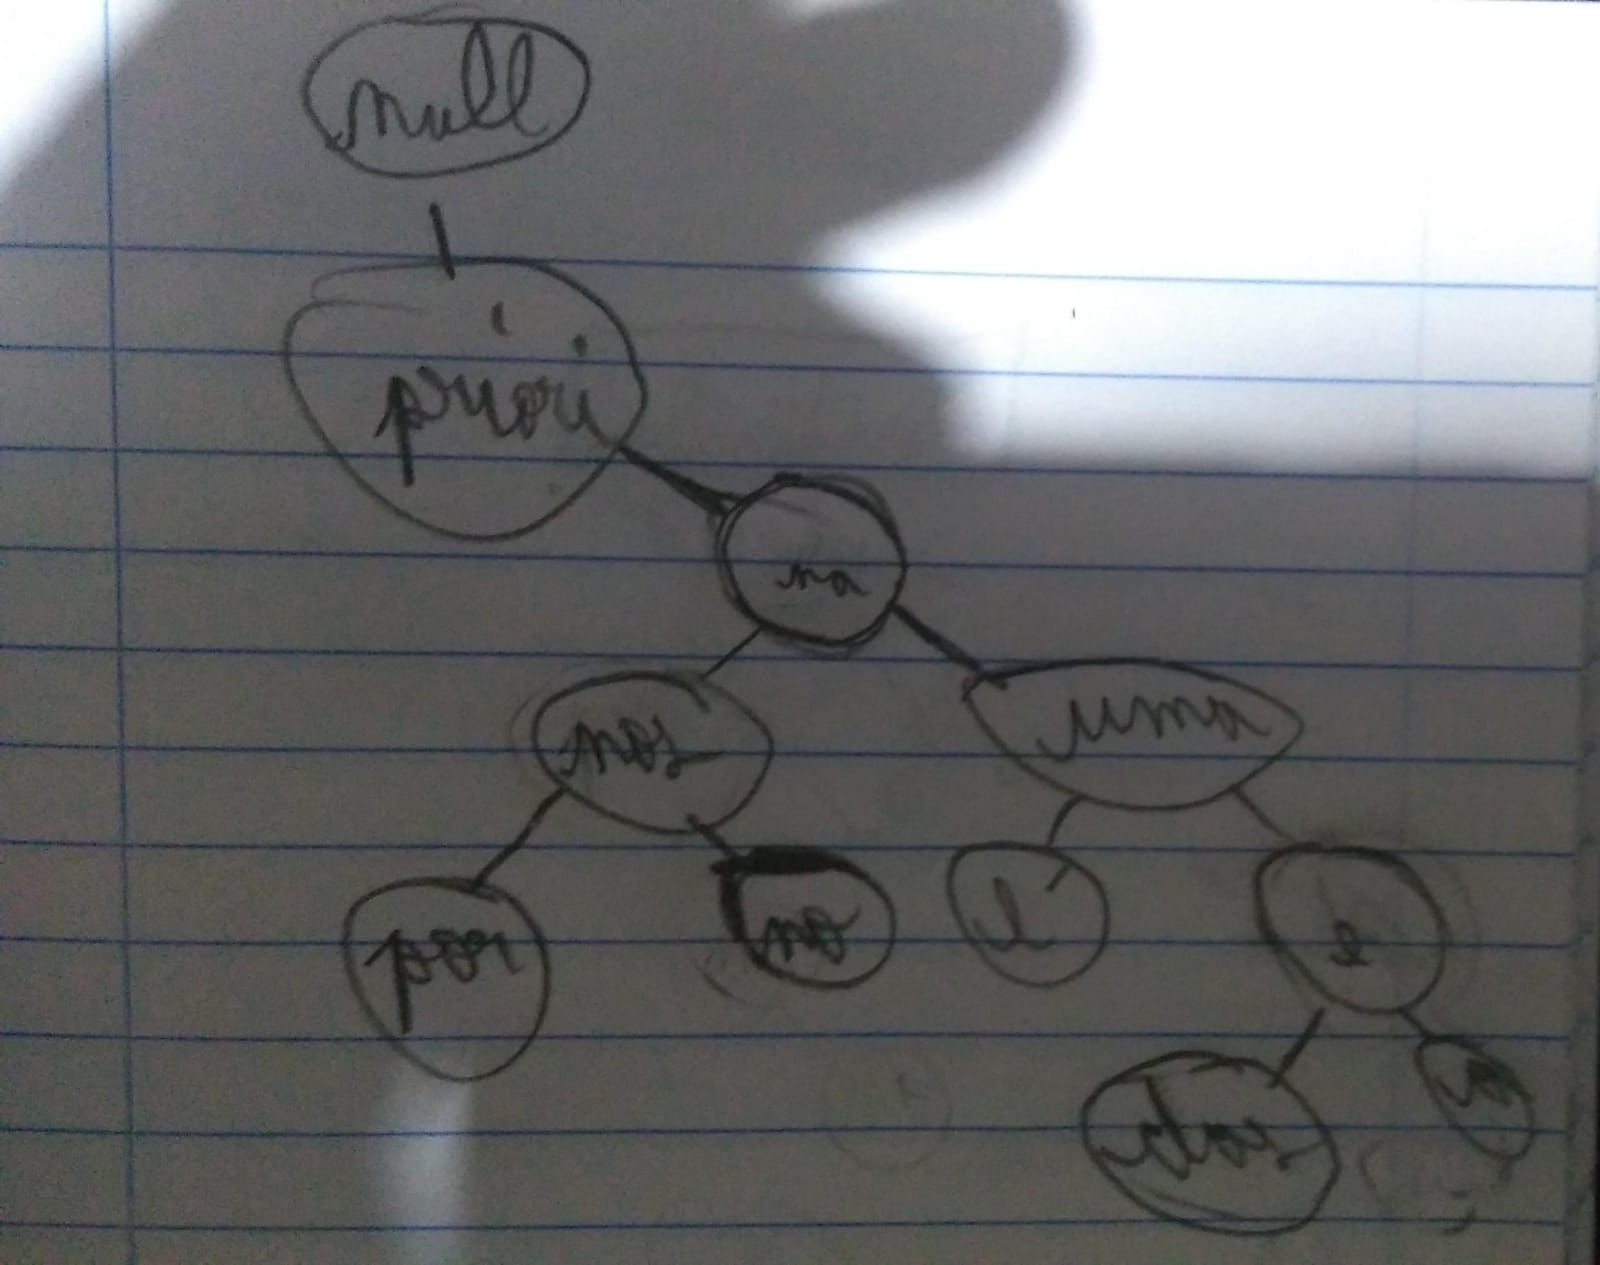 null
priori
na
nos uma
por no l e
dos